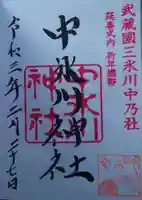 武蔵國三氷川中乃社
延喜式内 祈年國幣
中氷川神社
中氷川
神社
令和三年二月二十七日